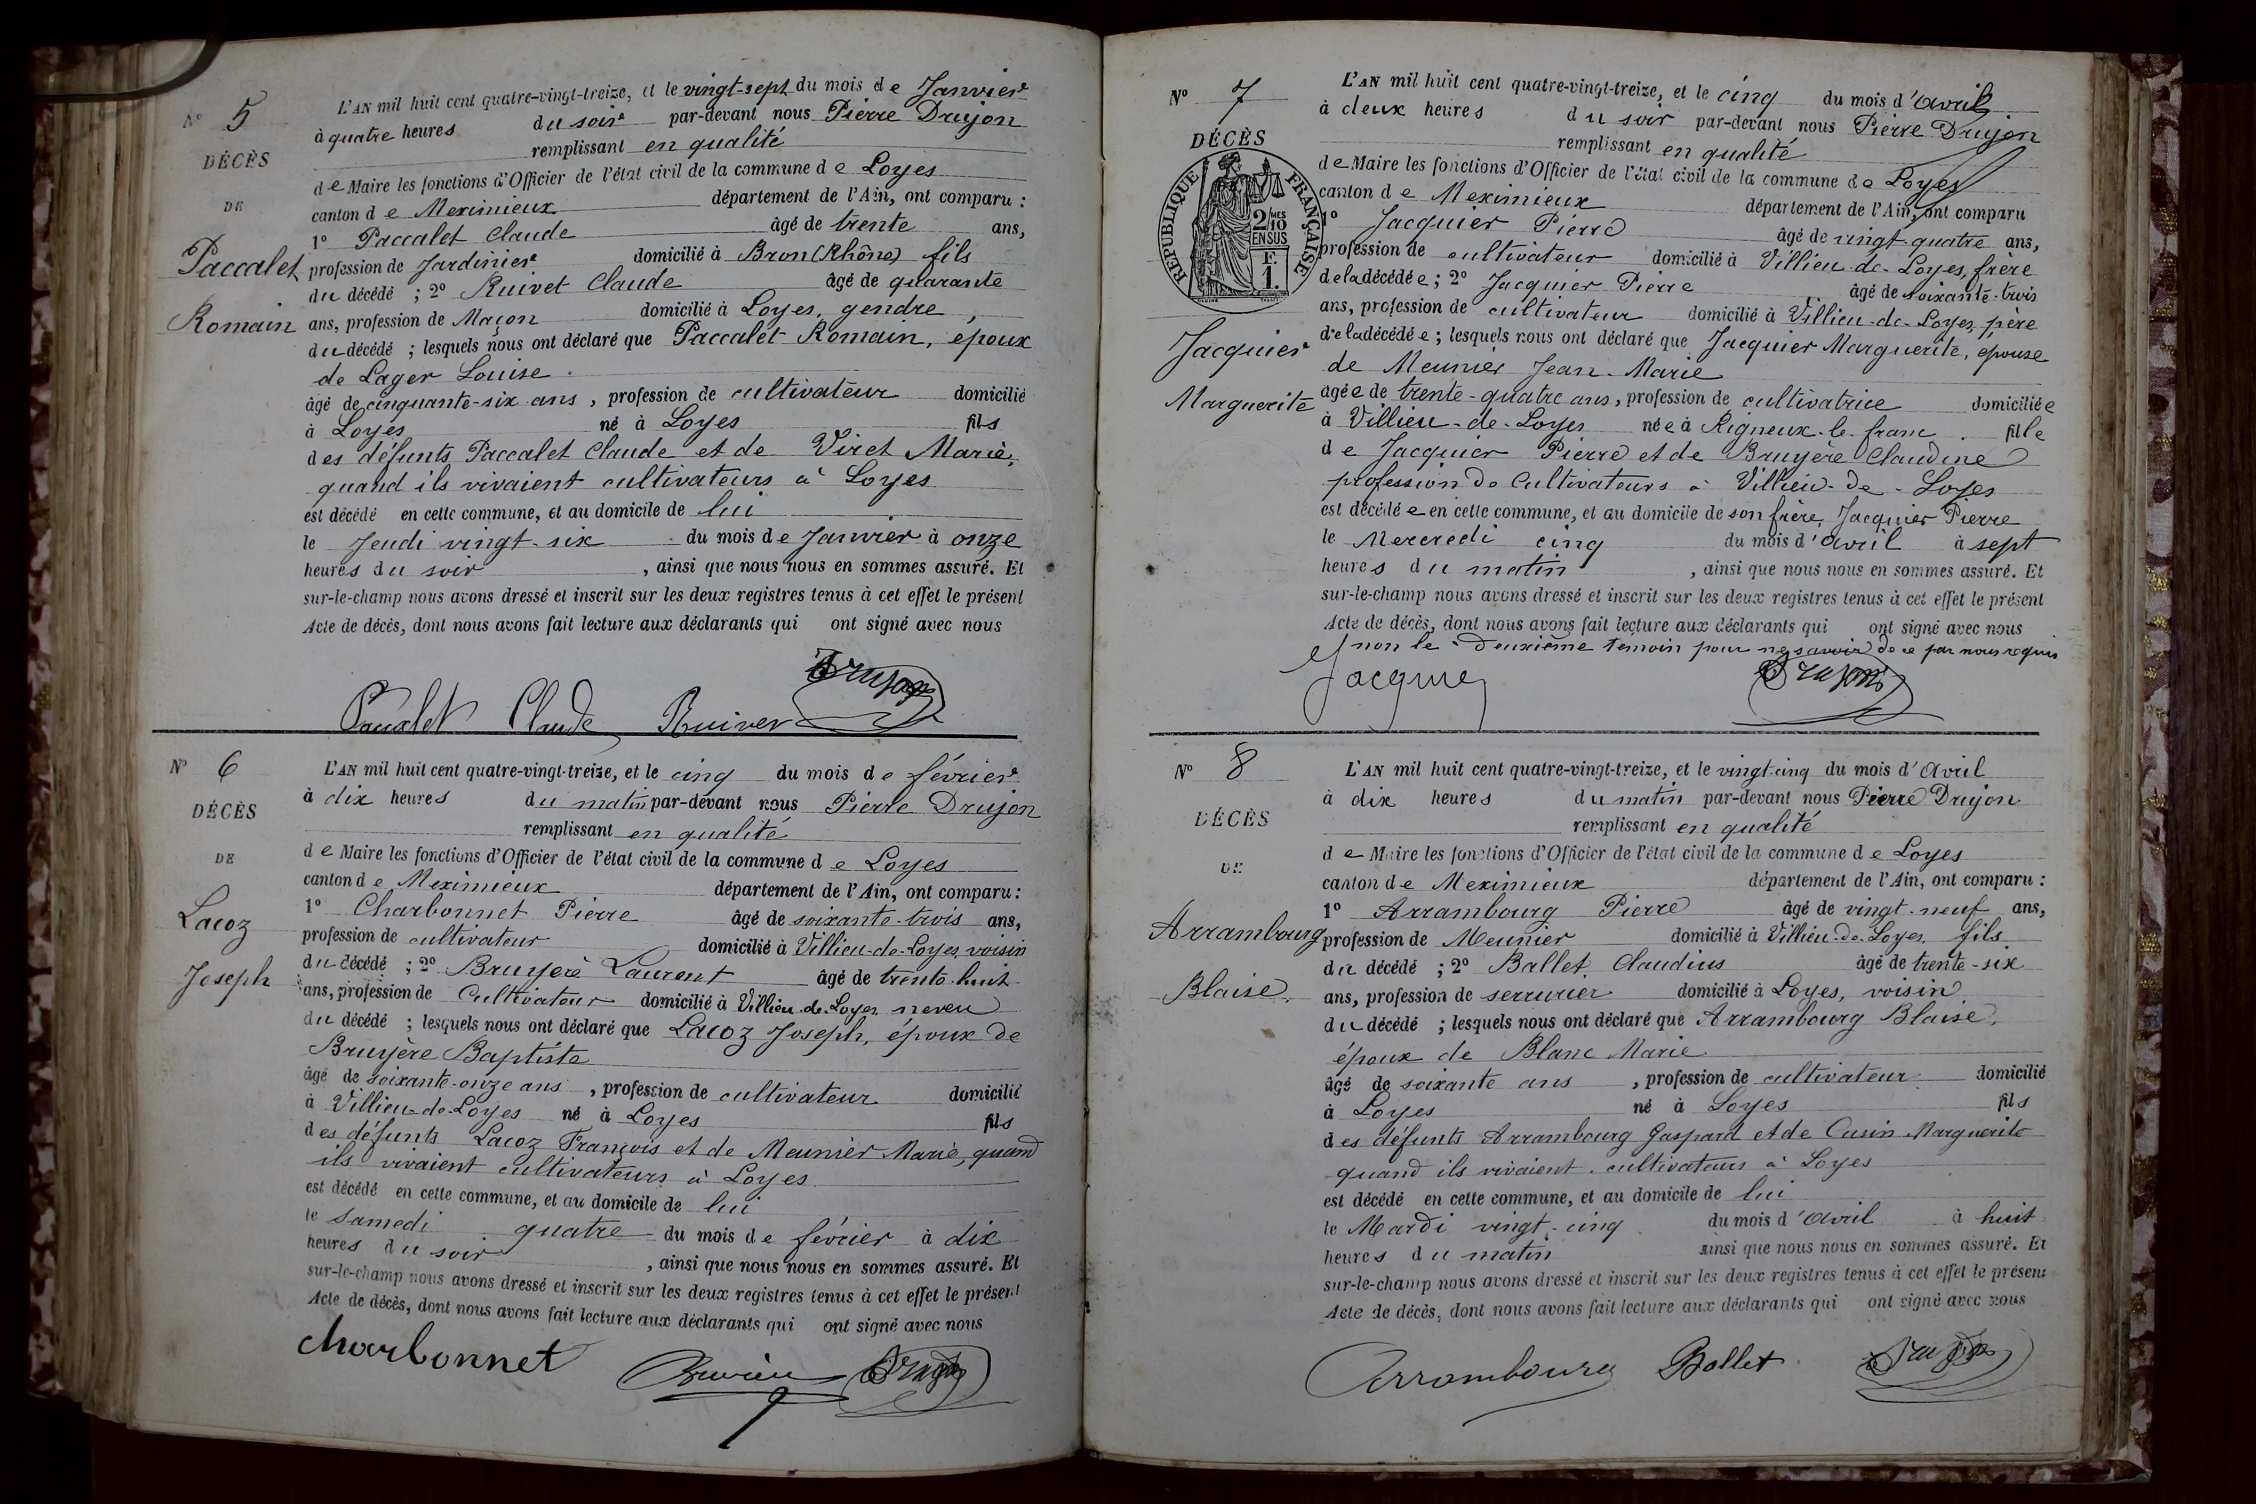 N° 5
DÉCÈS
DE
Paccalet
Romain
L'AN mil huit cent quatre-vingt-treize, et le vingt-sept du mois de Janvier
à quatre heures du soir par-devant nous Pierre Drujon
remplissant en qualité
de Maire les fonctions d'Officier de l'état civil de la commune de Loyes
canton de Meximieux département de l'Ain, ont comparu :
1° Paccalet Claude âgé de trente ans,
profession de Jardinier domicilié à Bron (Rhône) fils
du décédé ; 2° Ruivet Claude âgé de quarante
ans, profession de Maçon domicilié à Loyes, gendre ,
du décédé ; lesquels nous ont déclaré que Paccalet Romain, époux
de Lager Louise
âgé de cinquante-six ans , profession de cultivateur domicilié
à Loyes né à Loyes fils
des défunts Paccalet Claude et de Viret Marie,
quand ils vivaient cultivateurs à Loyes
est décédé en cette commune, et au domicile de lui
le Jeudi vingt-six du mois de Janvier à onze
heures du soir , ainsi que nous nous en sommes assuré. Et
sur-le-champ nous avons dressé et inscrit sur les deux registres tenus à cet effet le présent
Acte de décès, dont nous avons fait lecture aux déclarants qui ont signé avec nous
Drujon
Paccalet Claude Ruivet
N° 6
DÉCÈS
DE
Lacoz
Joseph
L'AN mil huit cent quatre-vingt-treize, et le cinq du mois de février
à dix heures du matin par-devant nous Pierre Drujon
remplissant en qualité
de Maire les fonctions d'Officier de l'état civil de la commune de Loyes
canton de Meximieux département de l'Ain, ont comparu :
1° Charbonnet Pierre âgé de soixante-trois ans,
profession de cultivateur domicilié à Villieu-de-Loyes, voisin
du décédé ; 2° Bruyère Laurent âgé de trente-huit
ans, profession de Cultivateur domicilié à Villieu-de-Loyes neveu
du décédé ; lesquels nous ont déclaré que Lacoz Joseph, époux de
Bruyère Baptiste
âgé de soixante-onze ans , profession de cultivateur domicilié
à Villieu-de-Loyes né à Loyes fils
des défunts Lacoz François et de Meunier Marie, quand
ils vivaient cultivateurs à Loyes
est décédé en cette commune, et au domicile de lui
le Samedi quatre du mois de février à dix
heures du soir , ainsi que nous nous en sommes assuré. Et
sur-le-champ nous avons dressé et inscrit sur les deux registres tenus à cet effet le présent
Acte de décès, dont nous avons fait lecture aux déclarants qui ont signé avec nous
Charbonnet Drujon
N° 7
DÉCÈS
RÉPUBLIQUE FRANÇAISE
2/10 MES
EN SUS
F.
1.
Jacquier
Marguerite
L'AN mil huit cent quatre-vingt-treize, et le cinq du mois d'avril
à deux heures du soir par-devant nous Pierre Drujon
remplissant en qualité
de Maire les fonctions d'Officier de l'état civil de la commune de Loyes
canton de Meximieux département de l'Ain, ont comparu
1° Jacquier Pierre âgé de vingt-quatre ans,
profession de cultivateur domicilié à Villieu-de-Loyes, frère
de la décédée ; 2° Jacquier Pierre âgé de soixante-trois
ans, profession de cultivateur domicilié à Villieu-de-Loyes, père
de la décédée ; lesquels nous ont déclaré que Jacquier Marguerite, épouse
de Meunier Jean-Marie
âgée de trente-quatre ans, profession de cultivatrice domiciliée
à Villieu-de-Loyes née à Rigneux-le-franc fille
de Jacquier Pierre et de Bruyère Claudine
profession de Cultivateurs à Villieu-de-Loyes
est décédée en cette commune, et au domicile de son frère, Jacquier Pierre
le Mercredi cinq du mois d'avril à sept
heures du matin , ainsi que nous nous en sommes assuré. Et
sur-le-champ nous avons dressé et inscrit sur les deux registres tenus à cet effet le présent
Acte de décès, dont nous avons fait lecture aux déclarants qui ont signé avec nous
non le deuxième témoin pour ne savoir de ce par nous requis
Jacquier Drujon
N° 8
DÉCÈS
DE
Arrambourg
Blaise
L'AN mil huit cent quatre-vingt-treize, et le vingt-cinq du mois d'Avril
à dix heures du matin par-devant nous Pierre Drujon
remplissant en qualité
de Maire les fonctions d'Officier de l'état civil de la commune de Loyes
canton de Meximieux département de l'Ain, ont comparu :
1° Arrambourg Pierre âgé de vingt-neuf ans,
profession de Meunier domicilié à Villieu-de-Loyes, fils
du décédé ; 2° Ballet Claudius âgé de trente-six
ans, profession de serrurier domicilié à Loyes, voisin
du décédé ; lesquels nous ont déclaré que Arrambourg Blaise,
époux de Blanc Marie
âgé de soixante ans , profession de cultivateur domicilié
à Loyes né à Loyes fils
des défunts Arrambourg Gaspard et de Cusin Marguerite
quand ils vivaient cultivateurs à Loyes
est décédé en cette commune, et au domicile de lui
le Mardi vingt-cinq du mois d'avril à huit
heures du matin ainsi que nous nous en sommes assuré. Et
sur-le-champ nous avons dressé et inscrit sur les deux registres tenus à cet effet le présent
Acte de décès, dont nous avons fait lecture aux déclarants qui ont signé avec nous
Arrambourg Ballet Drujon